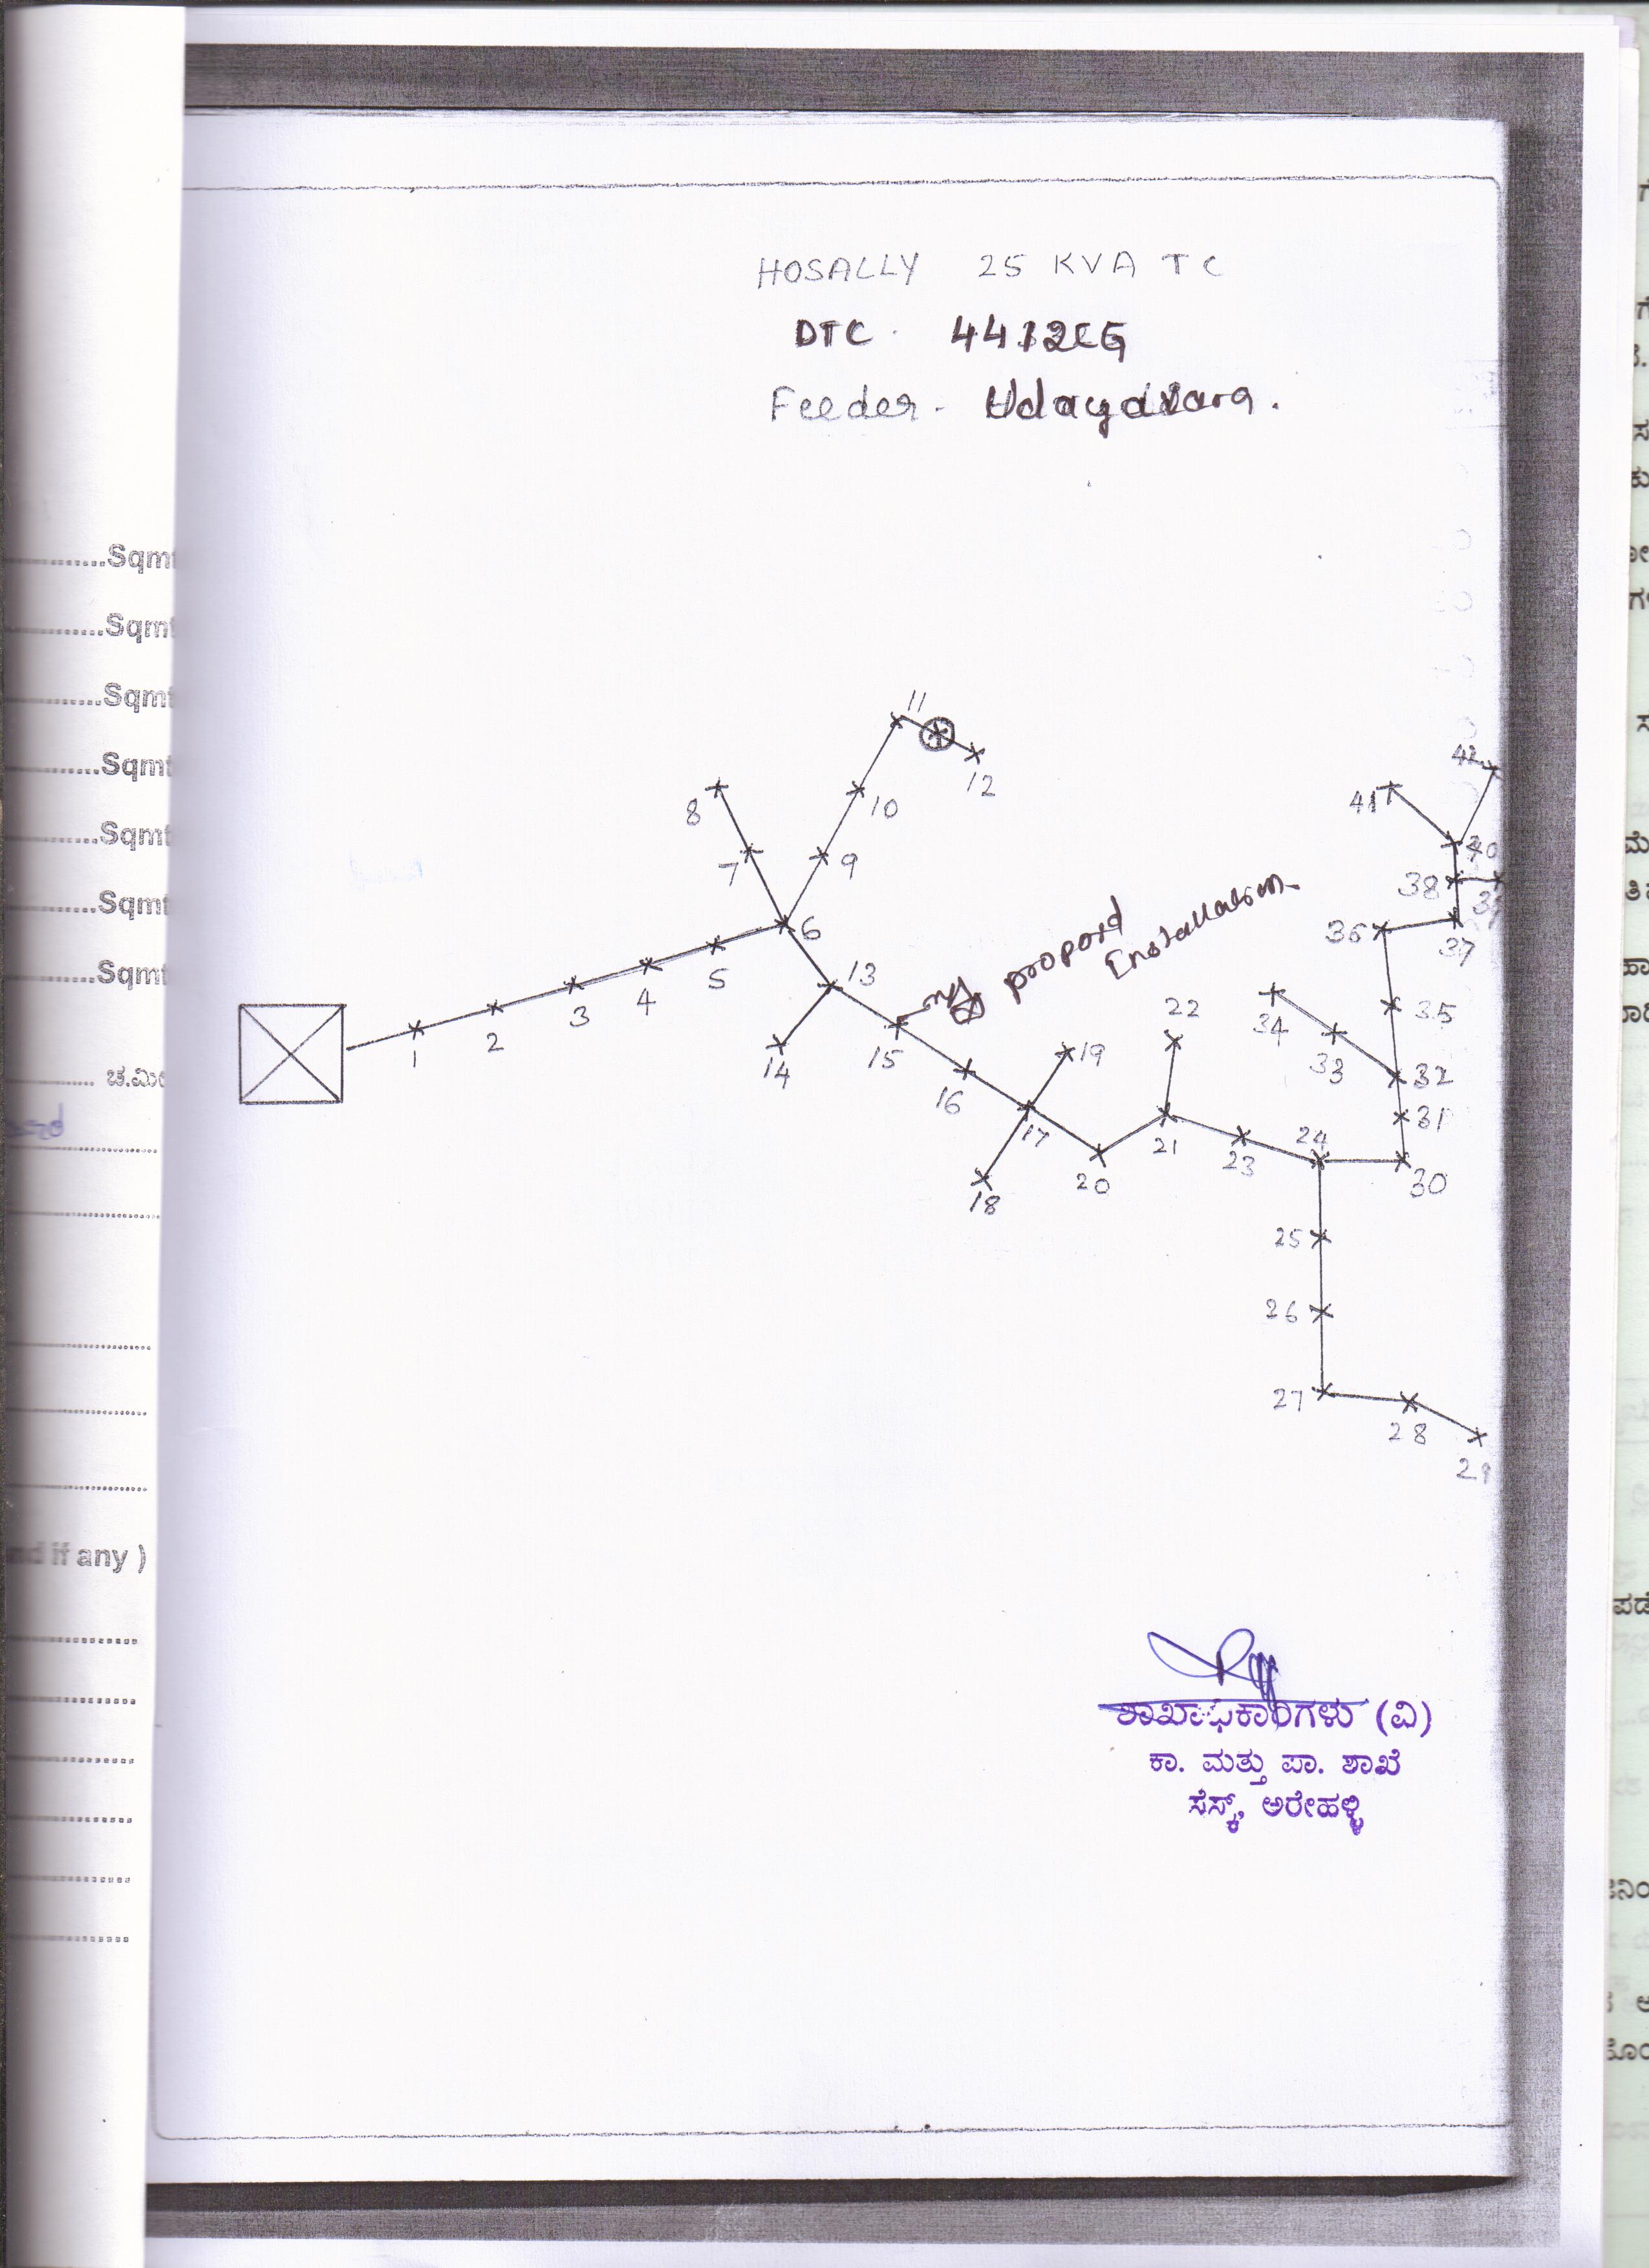 HOSALLY 25 KVA TC
DTC. 4412CG
Feeder. Udayavara.
11
12
10
8
7
9
6
13
5
4
3
2
1
14
15
propord
Enstallation
16
17
18
19
20
21
22
23
24
25
26
27
28
29
30
31
32
33
34
35
36
37
38
39
40
41
42
ಶಾಖಾಧಿಕಾರಿಗಳು (ವಿ)
ಕಾ. ಮತ್ತು ಪಾ. ಶಾಖೆ
ಸೆಸ್ಕ್, ಅರೇಹಳ್ಳಿ
..........Sqmt
..........Sqmt
..........Sqmt
..........Sqmt
..........Sqmt
..........Sqmt
..........Sqmt
if any )